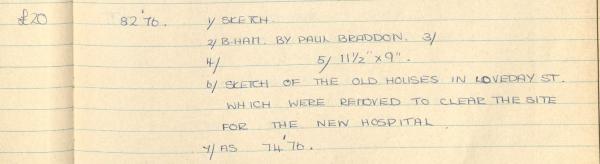 £20 82'76. 1/ SKETCH.
2/ B-HAM. BY PAUL BRADDON. 3/
4/ 5/ 11½" x 9".
6/ SKETCH OF THE OLD HOUSES IN LOVEDAY ST.
WHICH WERE REMOVED TO CLEAR THE SITE
FOR THE NEW HOSPITAL
7/ AS 74'76.